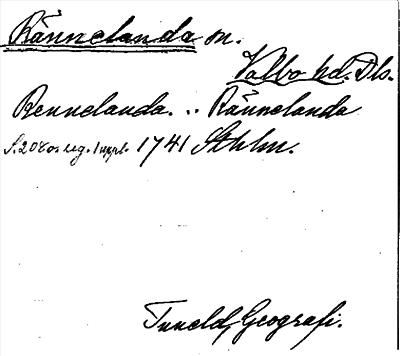 Rännelanda sn.
Valbo hd. Dls.
Rennelanda. .. Rännelanda
S. 208 os reg. 1 uppl. 1741 Sthlm.
Tuneld, Geografi.